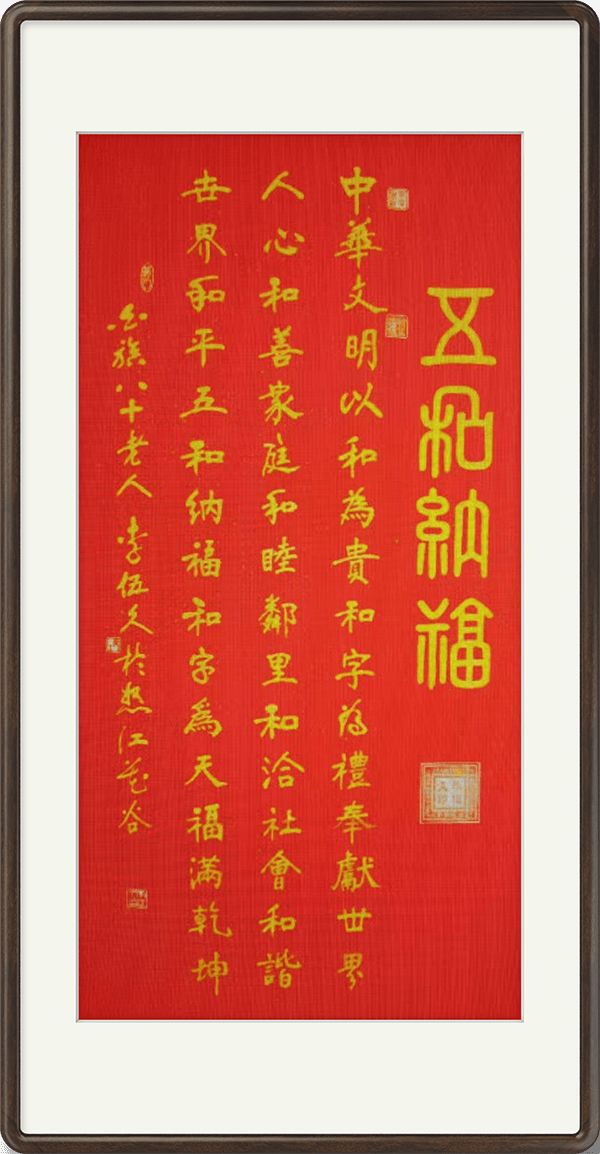 五和納福
中華文明以和為貴和字為禮奉獻世界
人心和善家庭和睦鄰里和洽社會和諧
世界和平五和納福和字為天福滿乾坤
白族八十老人李伍久於怒江花谷